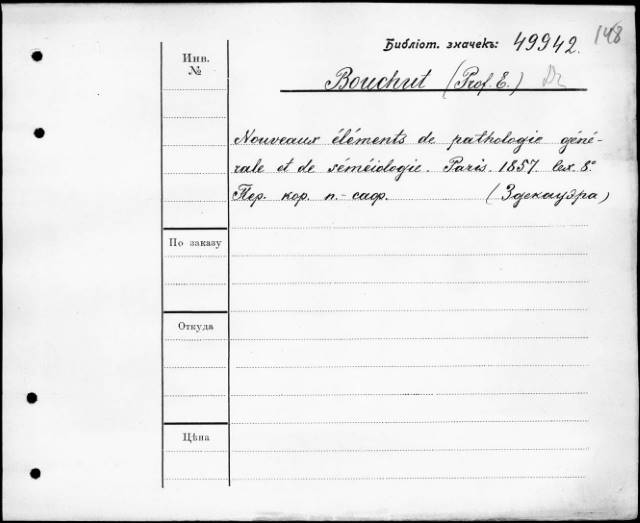 148
Библіот. значекъ: 49942.
Инв.
№
Bouchut (Prof. E.) Dr
Nouveaux éléments de pathologie géné-
rale et de séméiologie. Paris. 1857. lex. 8°
Пер. кор. п.-саф. (Здекауэра)
По заказу
Откуда
Цѣна